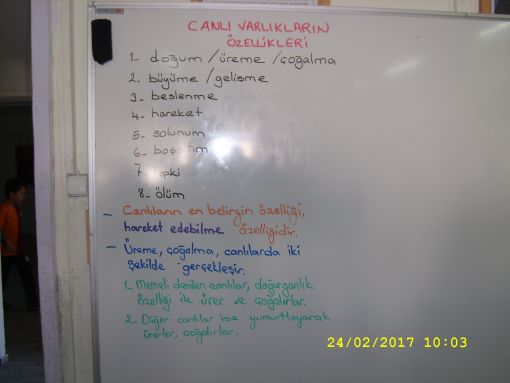 CANLI VARLIKLARIN
ÖZELLİKLERİ
1- doğum / üreme / çoğalma
2- büyüme / gelişme
3- beslenme
4- hareket
5- solunum
6- boşaltım
7 tepki
8- ölüm
- Canlıların en belirgin özelliği,
hareket edebilme özelliğidir.
- Üreme, çoğalma, canlılarda iki
şekilde gerçekleşir.
1- Memeli denilen canlılar, doğurganlık
özelliği ile ürer ve çoğalırlar.
2- Diğer canlılar ise yumurtlayarak
ürerler, çoğalırlar.
24/02/2017 10:03